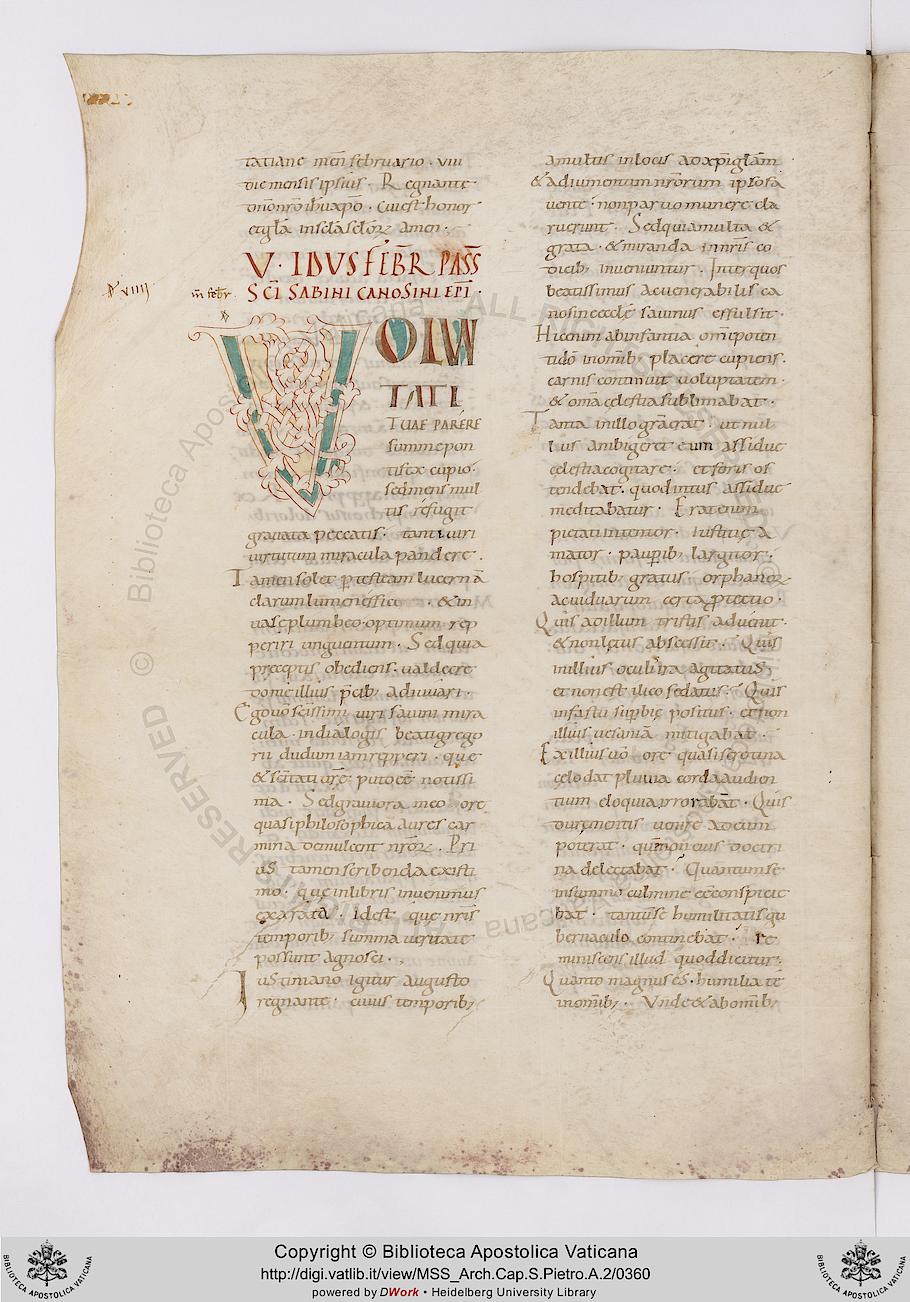 tatiane men̄ februario · viii
die mensis ipsius · Regnante
dn̄o nr̄o ih̄u xp̄o · cui est honor
et gl̄a in scl̄a scl̄oꝝ amen ·
V · IDVS FEBR PASS
m̄ febr̄
SCI SABINI CANOSINI EPI ·
VOLVN
TATI
TUAE PARERE
summe pon
tifex cupio ·
sed mens mul
tis refugit
grauata peccatis · tanti uiri
uirtutum miracula pandere .
Tamen solet p testeam lucernā
clarum lumen effici · & in
uase plumbeo optimum rep
periri unguentum · Sed quia
preceptis obediens · ualde cre
do me illius p̄cib; adiuuari ·
Ego uō sc̄issimi uiri sauini mira
cula · in dialogis beati grego
rii dudum iam repperi · que
& sc̄itati ur̄e puto eē notissi
ma · Sed grauiora meo ore
quasi philosophica aures car
mina demulcent nr̄oꝝ . Pri
us tamen scribenda existi
mo · que in libris inuenimus
exarata · id est que nr̄is
temporib; summa ueritate
possunt agnosci ·
Iustiniano igitur augusto
regnante · cuius temporib;
a multis in locis ad xp̄i gl̄am
& adiumentum nr̄orum ipso fa
uente · non paruo munere cla
ruerunt · Sed quia multa &
grata · & miranda in nr̄is co
dicib; inueniuntur · Inter quos
beatissimus ac uenerabilis ca
nosine eccl̄e sauinus effulsit ·
Hic cum ab infantia omīpoten
ti dō in omīb; placere cupiens .
carnis continuit uoluptatem ·
& om̄a celestia sublimabat ·
Tanta in illo gr̄a erat · ut nul
lus ambigeret eum assidue
celestia cogitare · et foris os
tendebat · quod intus assidue
meditabatur · Erat enim
pietati intentor · iustitie a
mator · paup̄rib; largitor ·
hospitib; gratus · orphanoꝝ
ac uiduarum certa ꝓtectio ·
Quis ad illum tristis aduenit ·
& non letus abscessit · Quis
in illius oculis ira agitatus
et non est ilico sedatus · Quis
in fastu supbie positus · et non
illius uesaniā mitigabat ·
Ex illius uō ore quasi serotina
celo dat pluuia corda audien
tium eloquia irrorabat · Quis
dure mentis uenire ad eum
poterat · quem non eius doctri
na delectabat · Quantum se
in summo culmine eē conspicie
bat · tantum se humilitatis gu
bernaculo continebat · re
miniscens illud quod dicitur ·
Quanto magnus es · humilia te
in omīb; · Unde & ab omīb;
Copyright © Biblioteca Apostolica Vaticana
http://digi.vatlib.it/view/MSS_Arch.Cap.S.Pietro.A.2/0360
powered by DWork • Heidelberg University Library
BIBLIOTECA APOSTOLICA VATICANA
BIBLIOTECA APOSTOLICA VATICANA
© Biblioteca Apostolica Vaticana ALL RIGHTS RESERVED